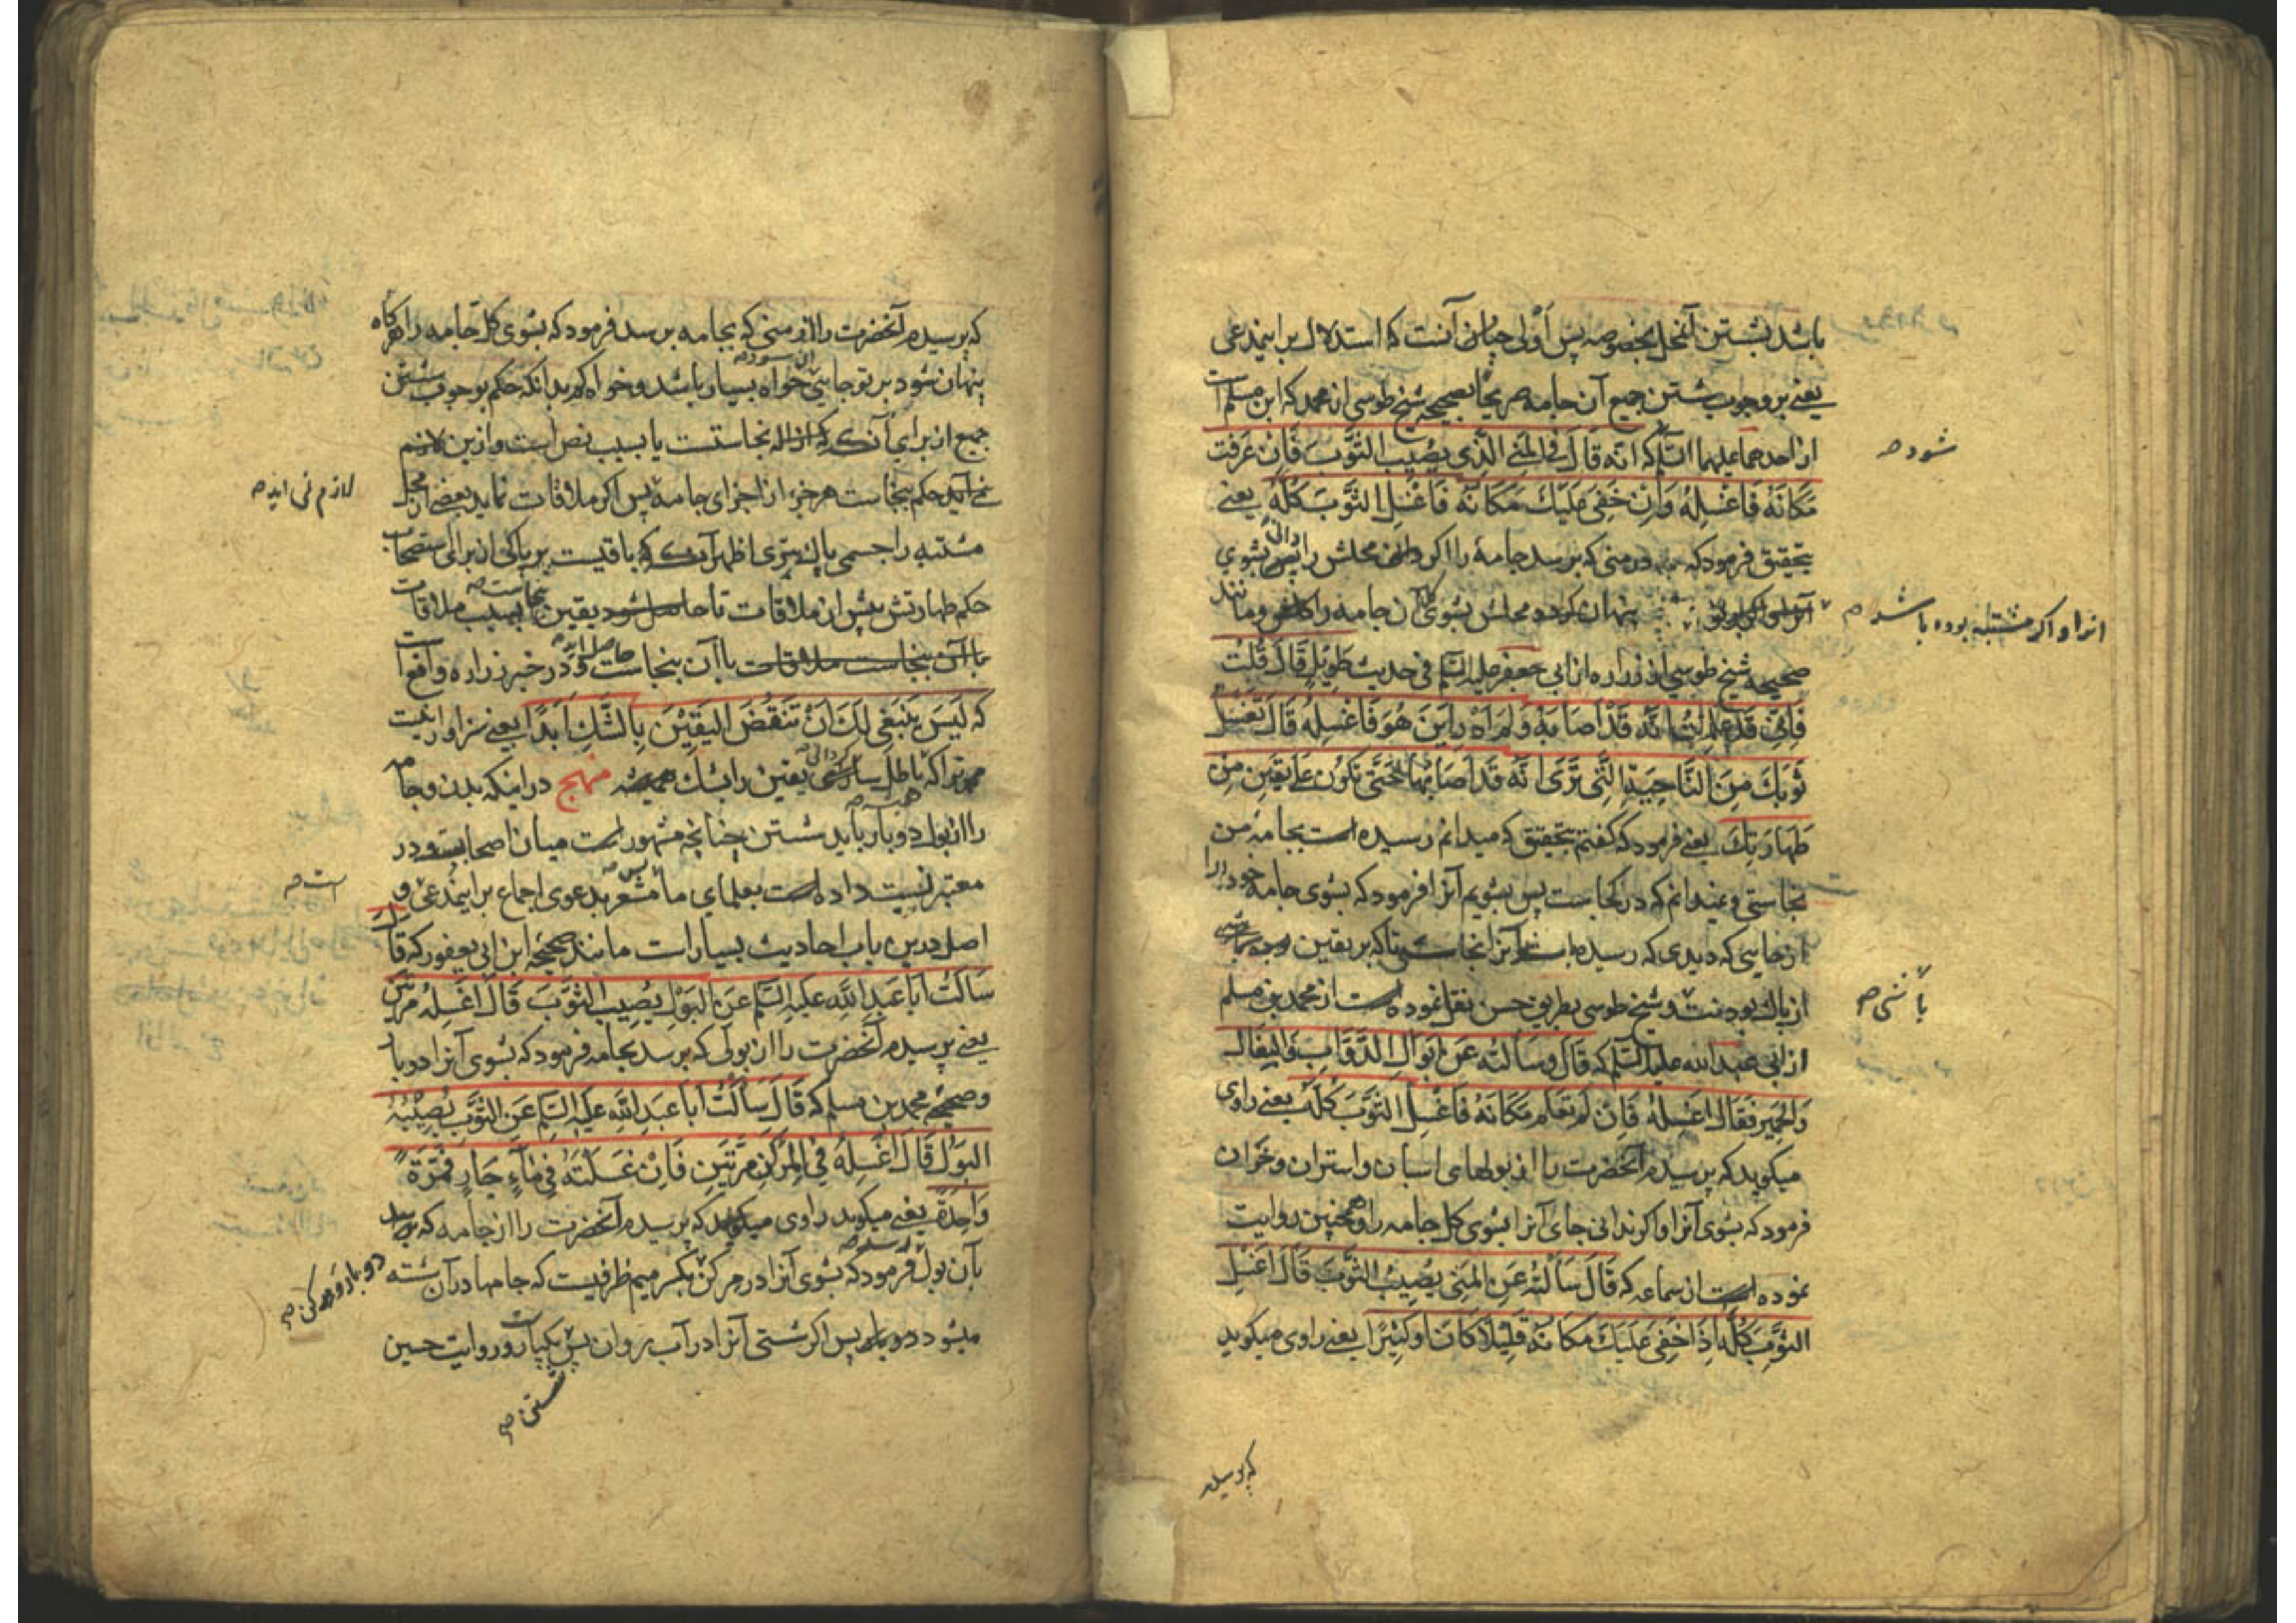 باشد بشستن آنمحل بخصوصه پس أولی چنان آنست که استدلال براینمدعی
یعنی بر وجوب شستن جمیع آن جامه صریحا بصحیحه شیخ طوسی از محمد که ابن مسلم است
شود صح
از احدهما علیهما السلم که انه قَالَ فی المَنِی الَّذی یُصیبُ الثَّوبَ فَاِن عَرَفتَ
مَکانَهُ فَاغسِلهُ وَاِن خَفِیَ عَلَیکَ مَکَانُهُ فَاغسِلِ الثَّوبَ کُلَّهُ یعنی
بتحقیق فرمود که در منی که برسد جامهٔ را اگر دانی محلش را پس بشوی
پنهان کردد محلش بشوی کل آن جامه را و مانند
انرا و اکر مشتبه بوده باشد صح
صحیحه شیخ طوسی از زراره از ابی جعفر علیه السلم فی حدیث طَویلٍ قَالَ قُلتُ
فَاِنّی قَد عَلِمتُ اَنَّه قَد اَصَابَهُ وَلَم اَدرِ اَینَ هُوَ فَاغسِلُهُ قَالَ تَغسِلُ
ثَوبَکَ مِنَ النَّاحِیَةِ الَّتی تَرَی اَنَّه قَد اَصَابَهَا حَتّی تَکُونَ عَلی یَقینٍ مِن
طَهَارَتِکَ یعنی فرمود که کفتم بتحقیق که میدانم رسیده است بجامهٔ من
نجاستی و نمیدانم که در کجاست پس بشویم آنرا فرمود که بشوی جامه خود را
از جایی که دیدی که رسیده است آنرا نجاستی تا که بر یقین
باشی صح
از پاک بودنت و شیخ طوسی بطریق حسن نقل نموده است از محمد بن مسلم
از ابی عبد الله علیه السلم که قَالَ وَسَالتُه عَن اَبوَالِ الدَّوَابِ وَالبِغَالِ
وَالحَمِیرِ فَقَالَ اغسِلهُ فَاِن لَم تَعلَم مَکَانَهُ فَاغسِلِ الثَّوبَ کُلَّهُ یعنی راوی
میکوید که پرسیدم آنحضرت را از بولهای اسبان و استران و خران
فرمود که بشوی آنرا و اکر ندانی جای آنرا بشوی کل جامه را و همچنین روایت
نموده است از سماعه که قَالَ سَاَلتُه عَنِ المَنِی یُصِیبُ الثَّوبَ قَالَ اغسِلِ
الثَّوبَ کُلَّهُ اِذَا خَفِیَ عَلَیکَ مَکَانُهُ قَلِیلًا کَانَ اَو کَثِیرًا یعنی راوی میکوید
که پرسیدم
که پرسیدم آنحضرت را از منی که بجامه برسد فرمود که بشوی کل جامه را هر کاه
پنهان شود بر تو جایی خواه بسیار باشد و خواه کم بدانکه حکم بوجوب شستن
جمیع از برای آنکه ازاله نجاستست یا بسبب نص است و ازین لازم
نمی آید حکم بنجاست هر جزء از اجزای جامه پس اکر ملاقات نماید بعضی از محل
لازم نمی اید صح
مشتبه را جسمی پاک بتری اظهر آنکه باقیست بر پاکی از برای استصحاب
حکم طهارتش پیش از ملاقات تا حاصل شود یقین نجاست بسبب ملاقات
با آن بنجاست ملاقات با آن بنجاست و در خبر زراره واقع است
که لَیسَ یَنبَغِی لَکَ اَن تَنقُضَ الیَقِینَ بِالشَّکِ اَبَدًا یعنی سزاوار نیست
مر ترا که باطل یقین را بشک همیشه منهج در اینکه بدن و جامه
را از بول دوبار باید شستن چنانچه مشهور است میان اصحاب و در
معتبر نسبت داده است بعلمای ما پس مشعر بدعوی اجماع براینمدعی و
است صح
اصل درین باب احادیث بسیار است مانند صحیحه ابن ابی یعفور که قَالَ
سَاَلتُ اَبَا عَبدِ اللهِ عَلَیهِ السَّلم عَنِ البَولِ یُصِیبُ الثَّوبَ قَالَ اغسِلهُ مَرَّتَینِ
یعنی پرسیدم آنحضرت را از بولی که برسد بجامه فرمود که بشوی آنرا دو بار
و صحیحه محمد بن مسلم که قَالَ سَاَلتُ اَبَا عَبدِ اللهِ عَلَیهِ السَّلم عَنِ الثَّوبِ یُصِیبُهُ
البَولُ قَالَ اغسِلهُ فِی المِرکَنِ مَرَّتَینِ فَاِن غَسَلتَهُ فِی مَآءٍ جَارٍ فَمَرَّةً
وَاحِدَةً یعنی میکوید راوی میکوید که پرسیدم آنحضرت را از جامه که برسد
بآن بول فرمود که بشوی آنرا در مرکن بکسر میم ظرفیست که جامها در آن شسته
دو بار و مرکن صح
میشود دو بار پس اکر شستی آنرا در آب روان پس یکبار و روایت حسین
شستن صح